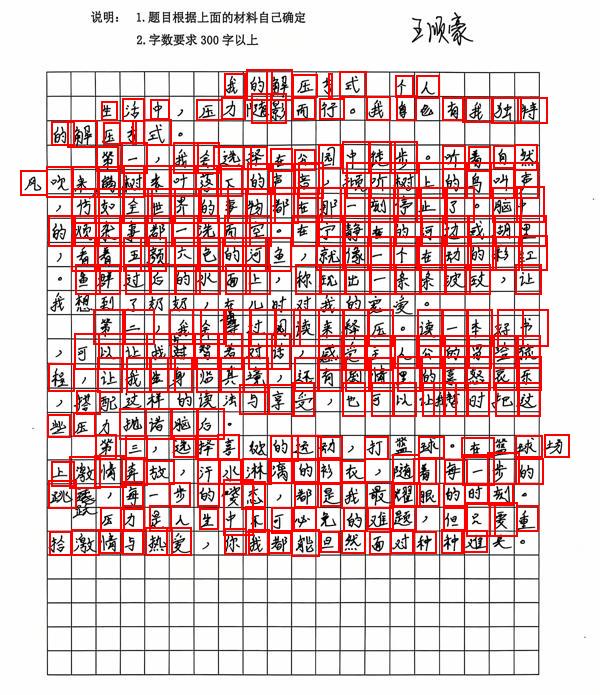 说明： 1.题目根据上面的材料自己确定
2.字数要求 300 字以上
王顺豪
我的解压方式 个人
生活中，压力随影而行。我自己有我独特
的解压方式。
第一，我会选择在公园中徒步。听着自然
风吹来的树木叶落下的声音，倾听树上的鸟叫声
，仿如全世界的事物都在那一刻停止了。脑中
的烦杂事都一洗而空。在宁静在的河边或湖里
，看着五颜六色的河鱼，就像一个在动的彩虹
。鱼群过后的水面上，称现出一条条波纹，让
我想到了奶奶，在儿时对我的宠爱。
第二，我会通过阅读来释压。读一本好书
，可以让我越智者对话，感受主人公的旅
程，让我生身临其境，还有剧情里的喜怒哀乐
，搭配这样的读法与享受，也可以让我暂时把这
些压力抛诸脑后。
第三，选择喜欢的运动，打篮球。在篮球场
上激情奔放，汗水淋漓的衫衣，随着每一步的
跳跃，每一步的姿态，都是我最耀眼的时刻。
压力是人生中不可必免的难题，但只要重
拾激情与热爱，你我都能坦然面对种种难关。